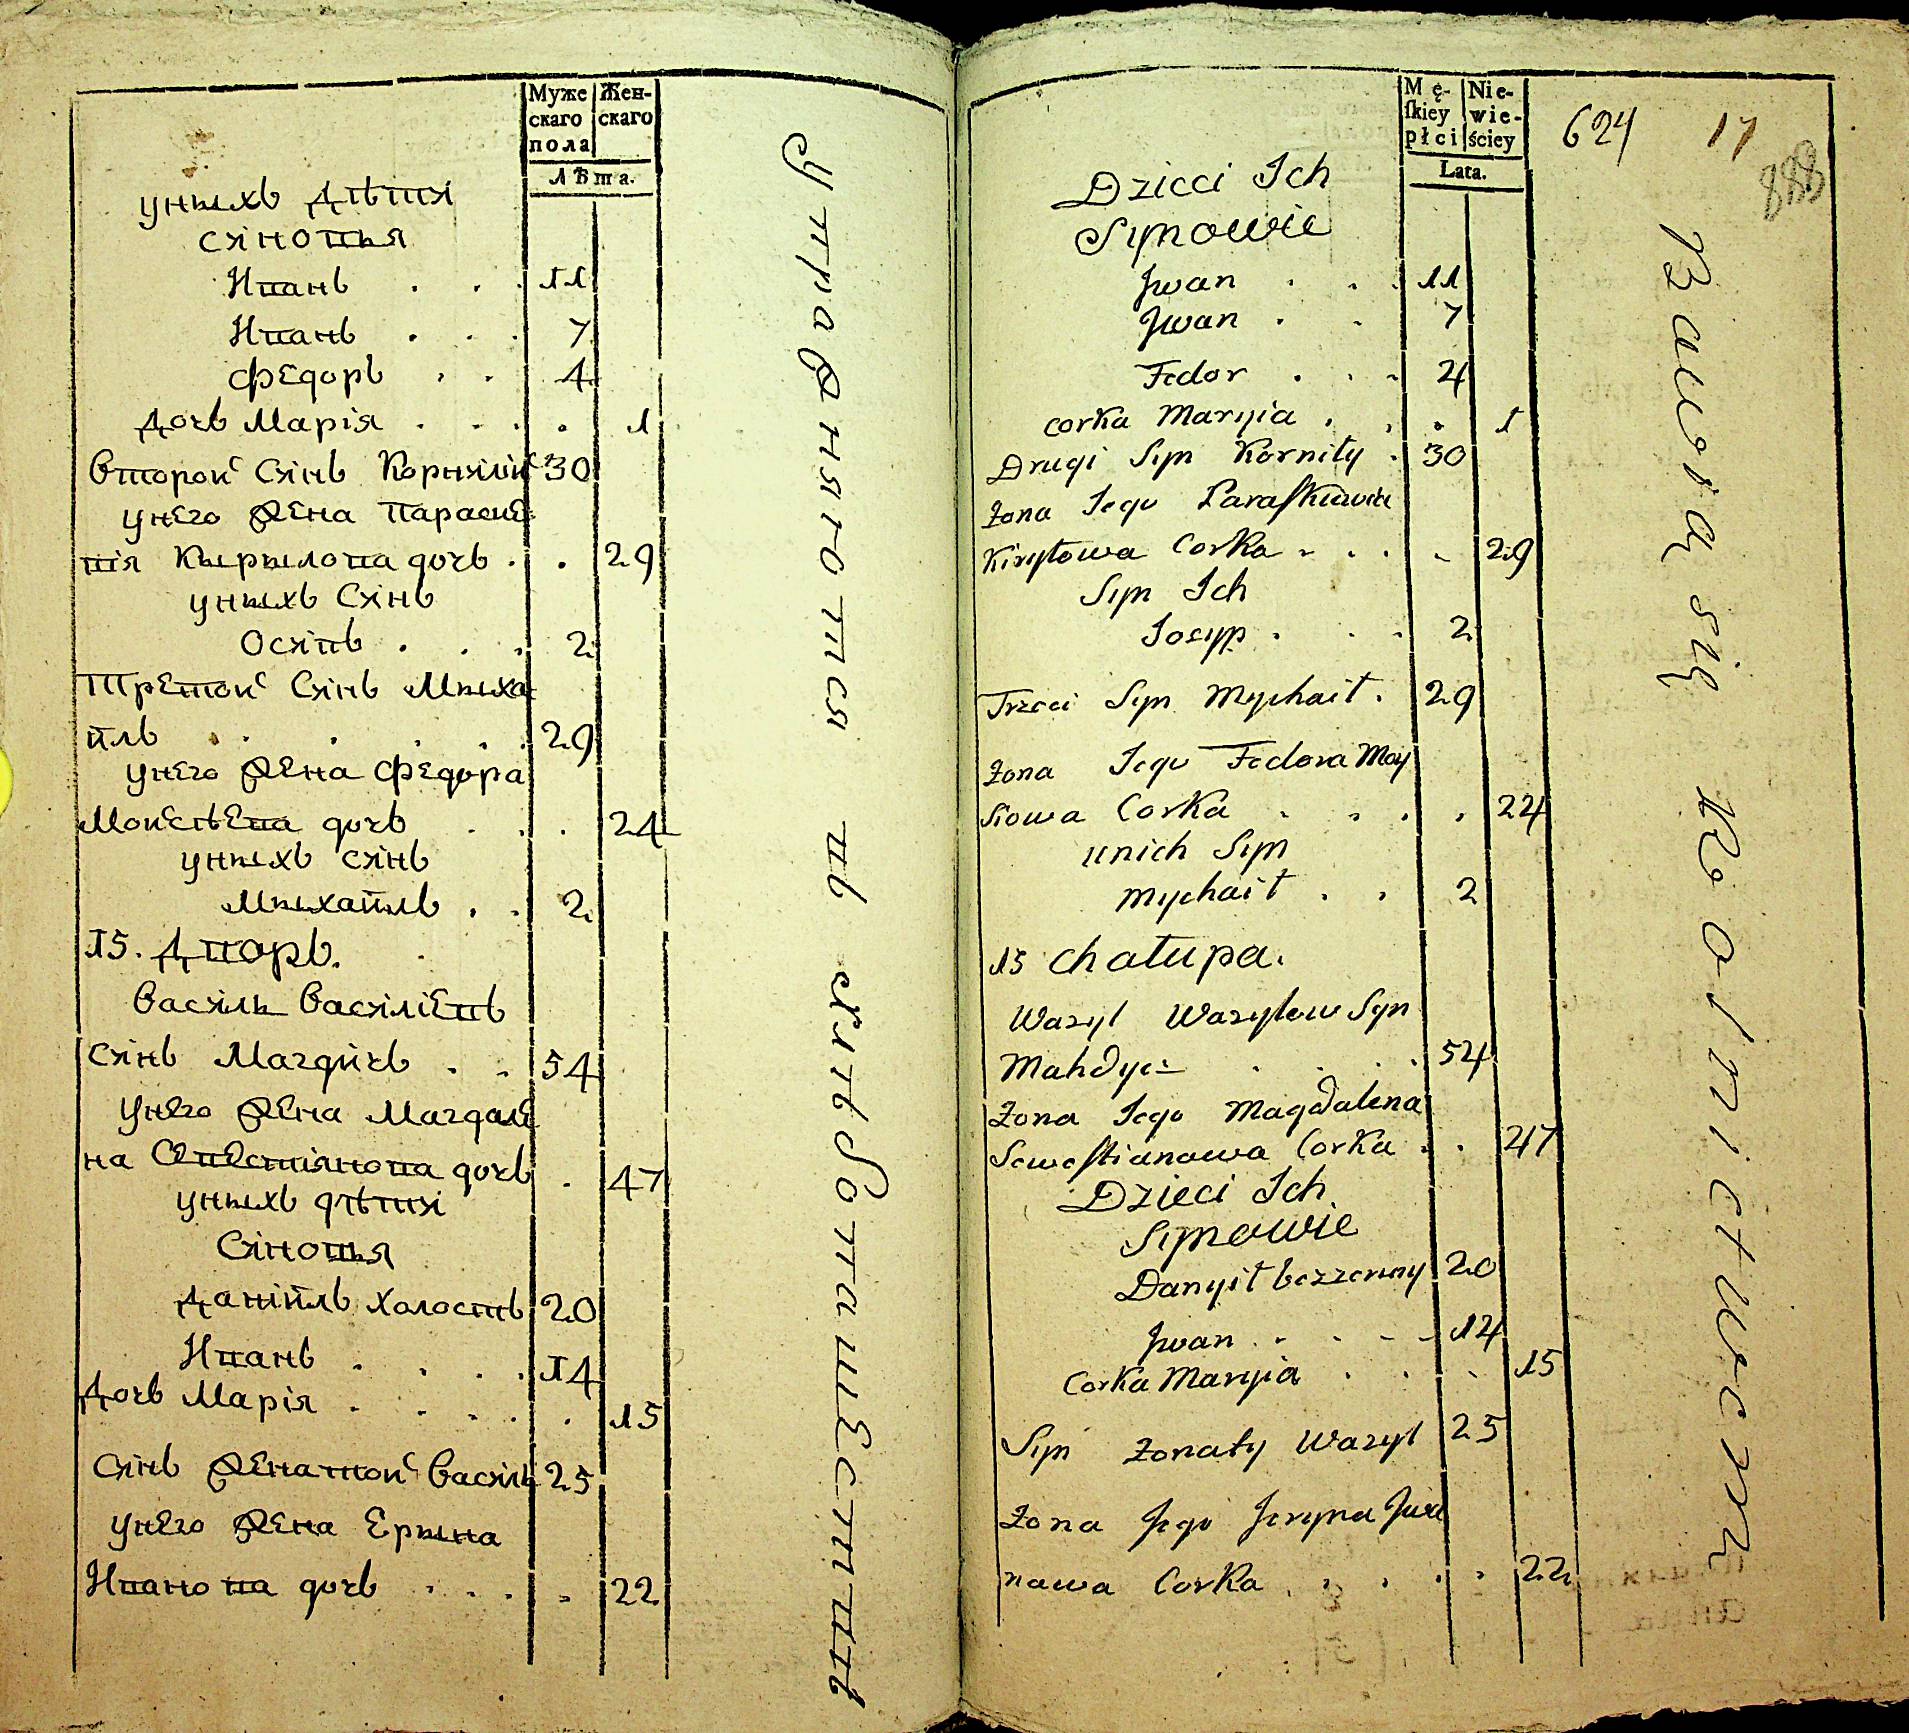 Муже
скаго
пола
Жен-
скаго
Лѣта.
уныхъ дѣтия
синовья
Иванъ . . . 11
Иванъ . . . 7
Федоръ . . 4
дочъ Марія . . . . 1
второй Синъ Корнилий 30
унего жена Параске
вія Кырылова дочъ . . 29
уныхъ Синъ
Осипъ . . . 2
Третой Синъ Мыха
йлъ . . . . . 29
унего жена Федора
Мойсѣева дочъ . . . 24
уныхъ синъ
Мыхайлъ . . 2
15. Дворъ.
Василь Василіевъ
синъ Магдичъ . . 54
унего жена Магдале
на Севестиянова дочъ . 47
уныхъ дѣтия
Синовья
Даніилъ холостъ 20
Иванъ . . . . 14
Дочъ Марія . . . . . 15
Синъ женатой Василь 25
унего жена Ерына
Иванова дочъ . . . . 22
упражняются въ хлѣбопашествѣ
Mę-
ſkiey
płci
Nie-
wie-
ściey
Lata.
624 17
888
Dzieci Ich
Synowie
Jwan . . . 11
Jwan . . 7
Fedor . . . 4
corka Maryia . . . 1
Drugi Syn Korniły . 30
żona Jego Paraſkiewia
Kiryłowa Corka . . . . 29
Syn Ich
Josyp . . . 2
Trzeci Syn Mychaił . 29
żona Jego Fedora Moy
siowa Corka . . . . 24
unich Syn
Mychaił . . 2
15 Chałupa.
Wazyl Wazylew Syn
Mahdycz . . . . 54
żona Jego Magdalena
Seweſtianowa Corka . . 47
Dzieci Ich
Synowie
Danyił bezzenny 20
Jwan . . . . 14
Corka Maryia . . . 15
Syn żonaty Wazyl 25
żona Jego Jeryna Jwa
nowa Corka . . . . . 22
Bawią się Rolnictwem